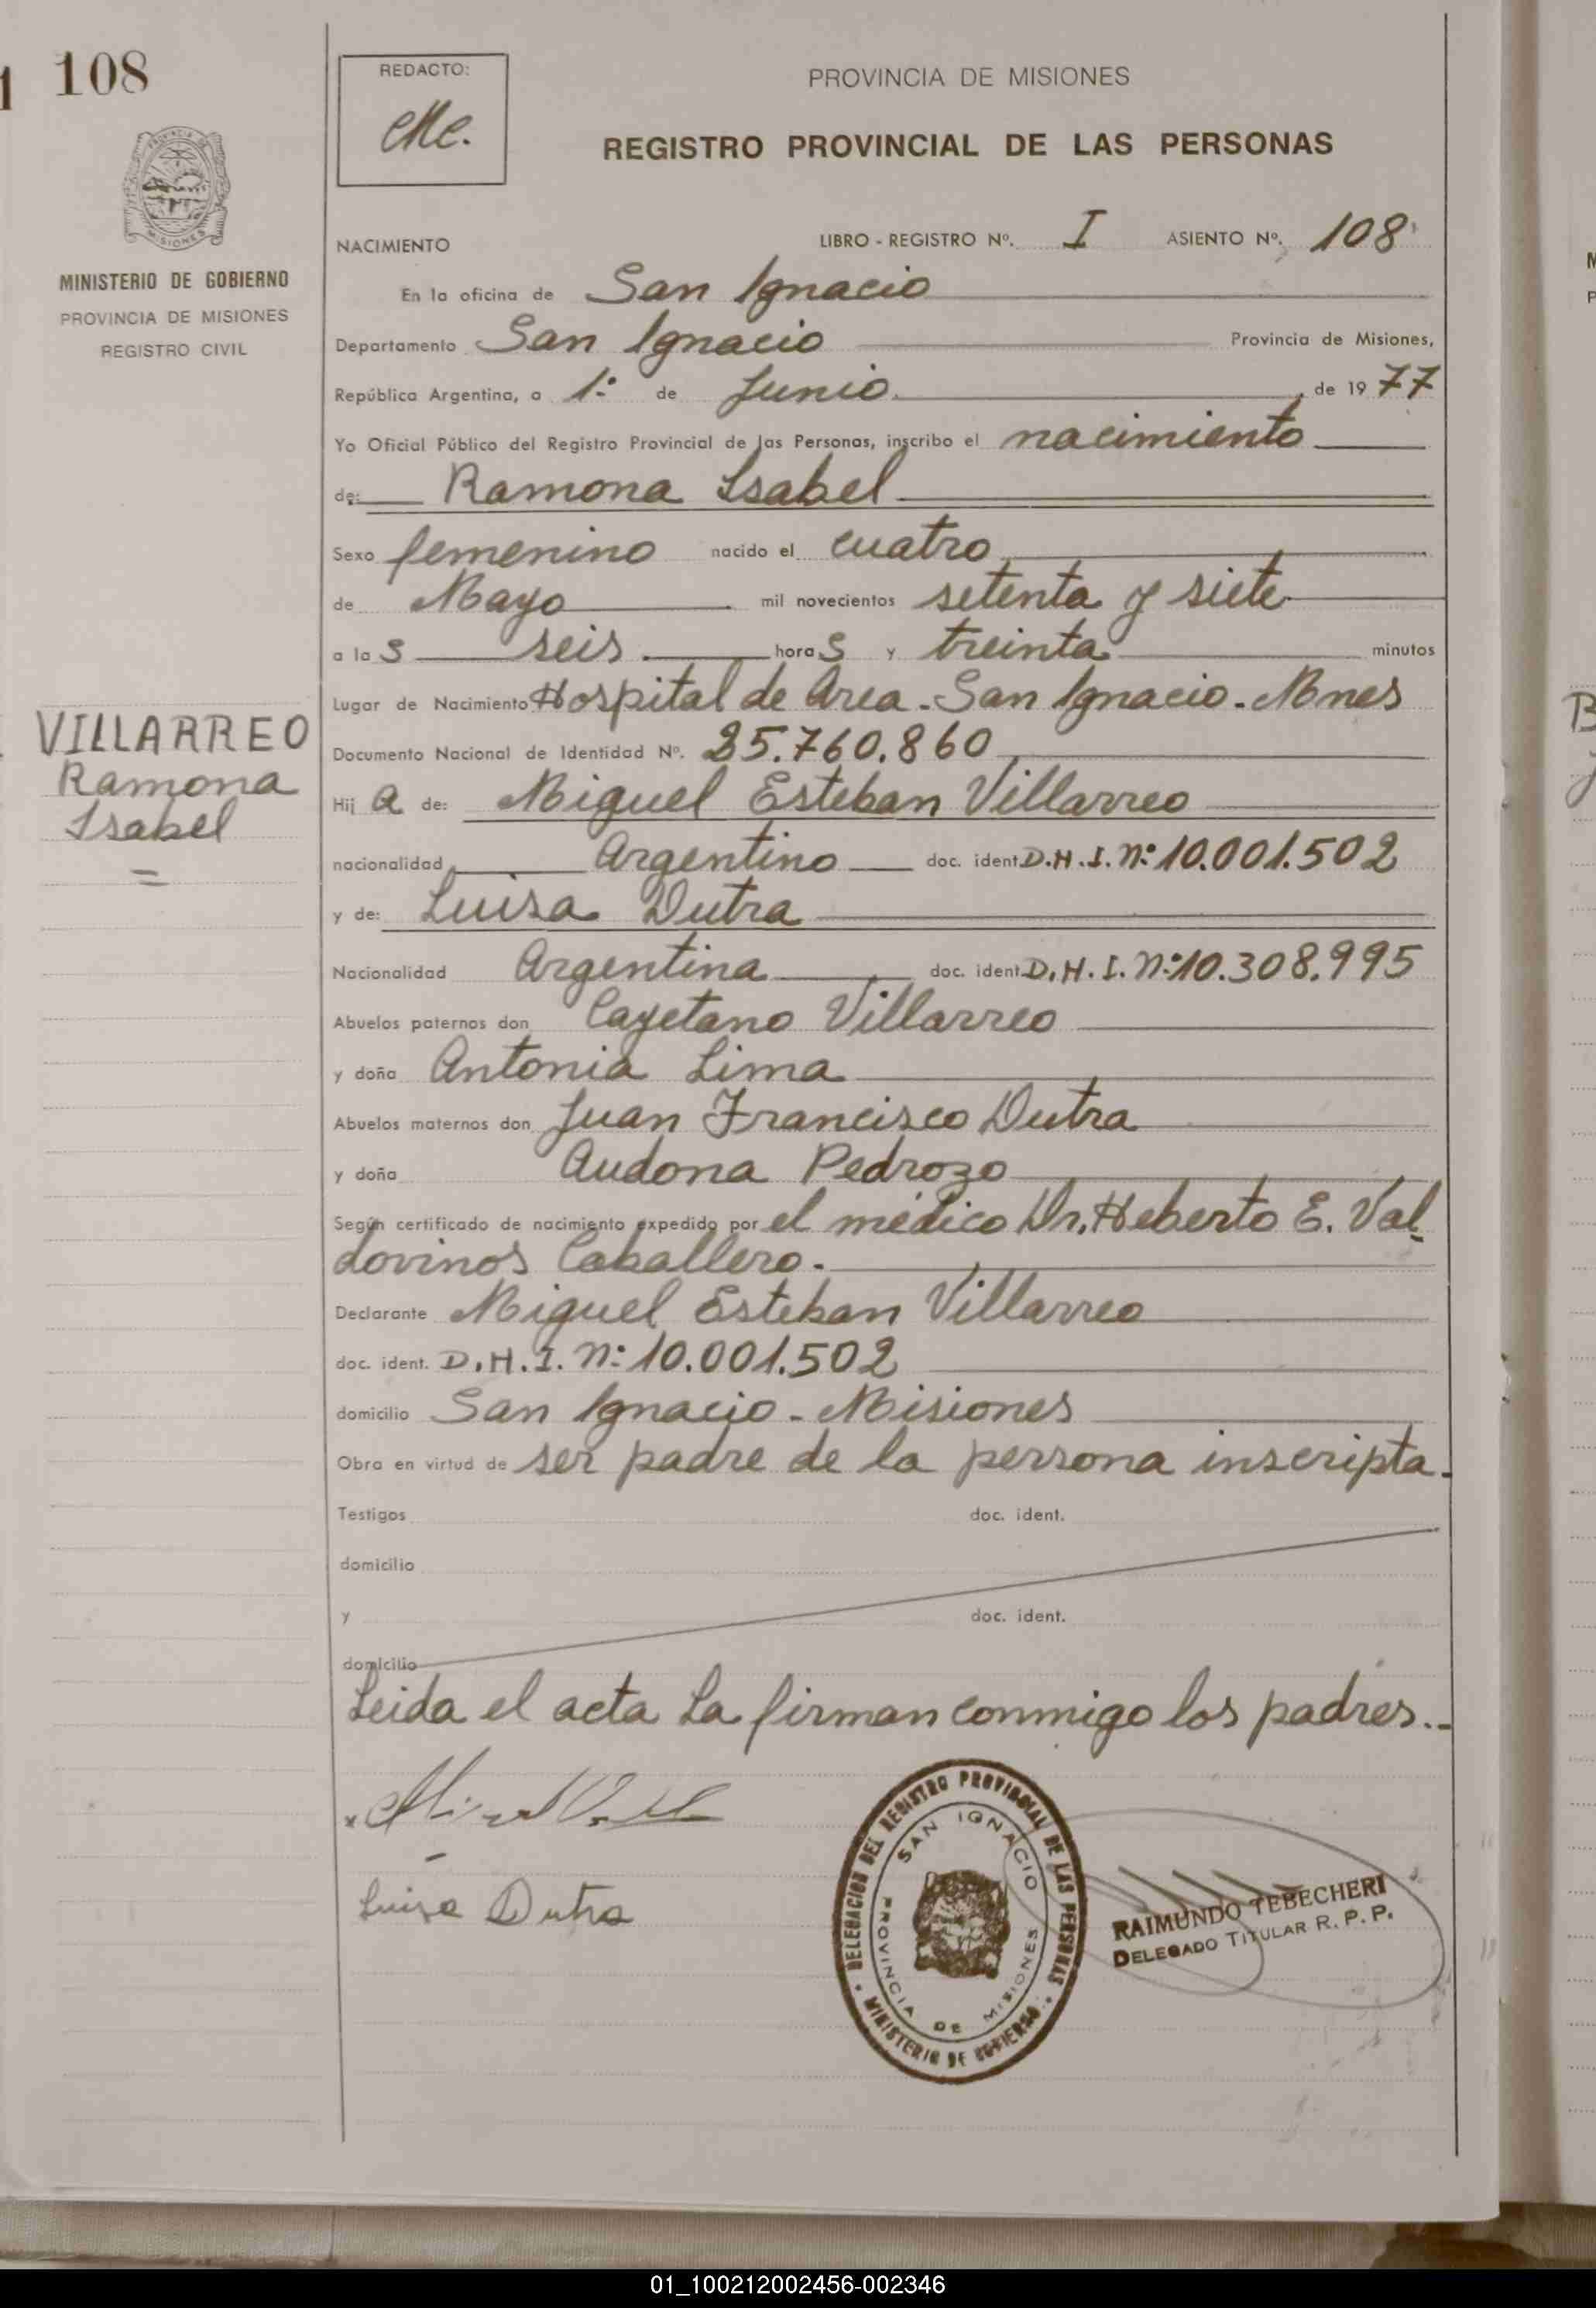 108
REDACTO:
PROVINCIA DE MISIONES
REGISTRO PROVINCIAL DE LAS PERSONAS
MISIONES
MINISTERIO DE GOBIERNO
PROVINCIA DE MISIONES
REGISTRO CIVIL
NACIMIENTO LIBRO - REGISTRO Nº. I ASIENTO Nº. 108
En la oficina de San Ignacio
Departamento San Ignacio Provincia de Misiones,
República Argentina, a 1º de Junio, de 1977
Yo Oficial Público del Registro Provincial de las Personas, inscribo el nacimiento
de: Ramona Isabel
Sexo femenino nacido el cuatro
de Mayo mil novecientos setenta y siete
a las seis horas y treinta minutos
Lugar de Nacimiento Hospital de Area - San Ignacio - Mnes
Documento Nacional de Identidad Nº. 25.760.860
VILLARREO
Ramona
Isabel
=
Hija de: Miguel Esteban Villarreo
nacionalidad Argentino doc. ident D.N.I. Nº 10.001.502
y de: Luisa Dutra
Nacionalidad Argentina doc. ident D.N.I. Nº 10.308.995
Abuelos paternos don Cayetano Villarreo
y doña Antonia Lima
Abuelos maternos don Juan Francisco Dutra
y doña Audona Pedrozo
Según certificado de nacimiento expedido por el médico Dr. Heberto E. Val
dovinos Caballero.
Declarante Miguel Esteban Villarreo
doc. ident. D.N.I. Nº 10.001.502
domicilio San Ignacio - Misiones
Obra en virtud de ser padre de la persona inscripta.
Testigos doc. ident.
domicilio
y doc. ident.
domicilio
Leida el acta La firman conmigo los padres..
Luisa Dutra
DELEGACION DEL REGISTRO PROVINCIAL DE LAS PERSONAS
MINISTERIO DE GOBIERNO
SAN IGNACIO
PROVINCIA DE MISIONES
RAIMUNDO TEBECHERI
DELEGADO TITULAR R. P. P.
01_100212002456-002346